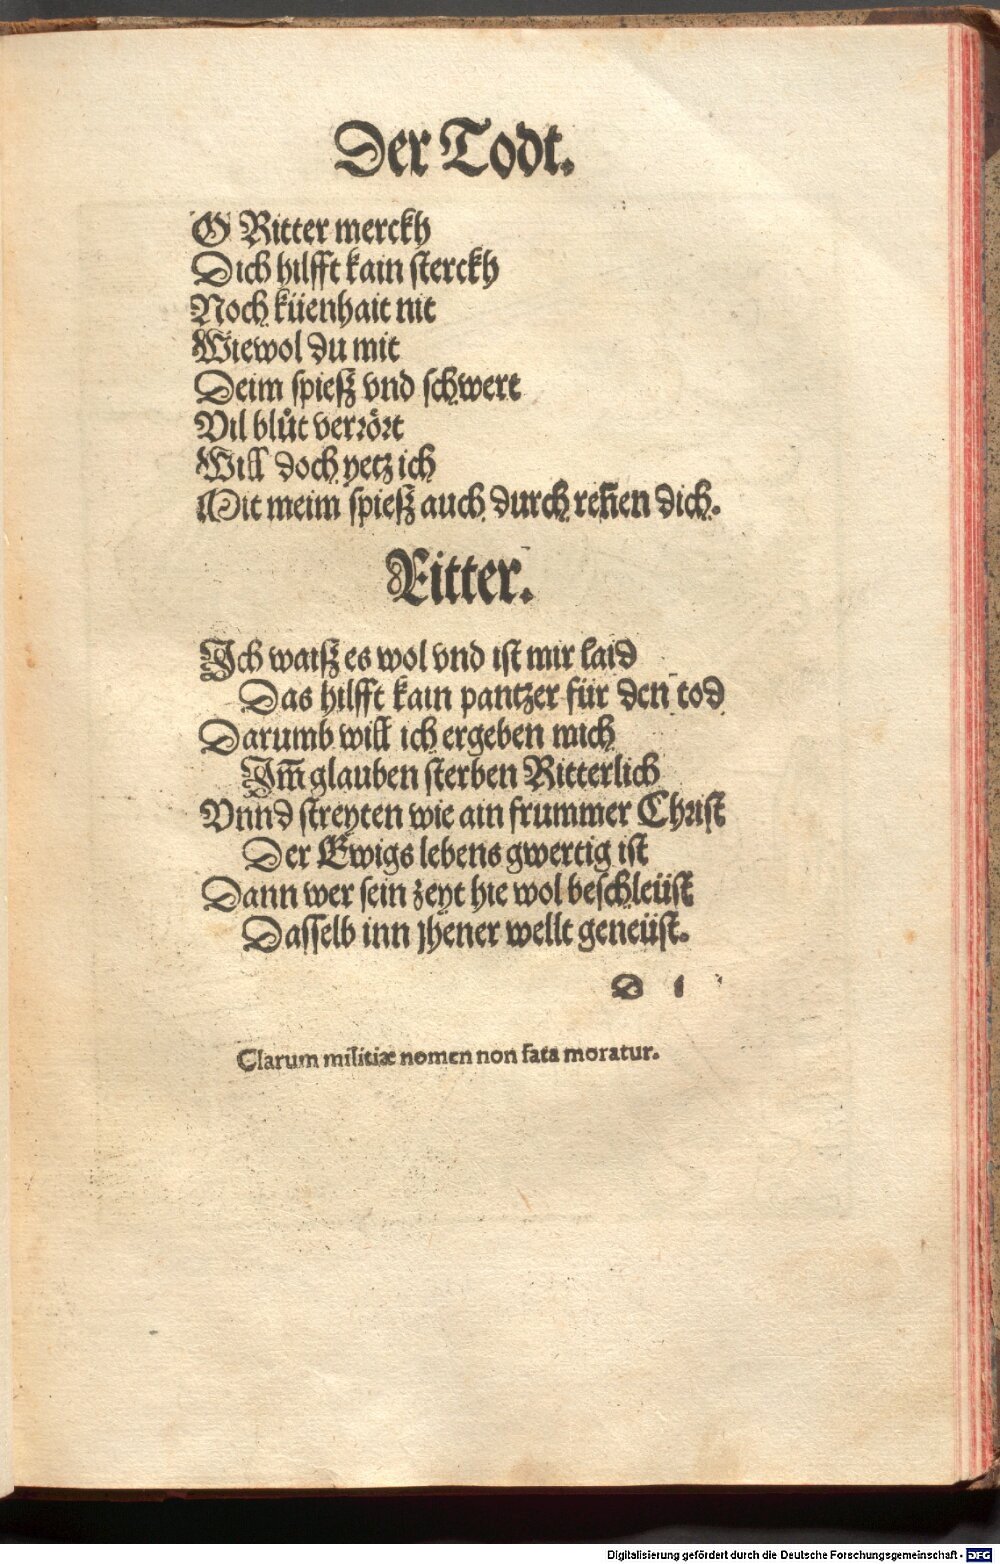 Der Todt.
O Ritter merckh
Dich hilfft kain sterckh
Noch küenhait nit
Wiewol du mit
Deim spieß vnd schwert
Vil blůt verrört
Will doch yetz ich
Mit meim spieß auch durch reñen dich.
Ritter.
Ich waiß es wol vnd ist mir laid
Das hilfft kain pantzer für den tod
Darumb will ich ergeben mich
Im̃ glauben sterben Ritterlich
Vnnd streyten wie ain frummer Christ
Der Ewigs lebens gwertig ist
Dann wer sein zeyt hie wol beschleüst
Dasselb inn jhener wellt geneüst.
D i
Clarum militiæ nomen non fata moratur.
Digitalisierung gefördert durch die Deutsche Forschungsgemeinschaft - DFG